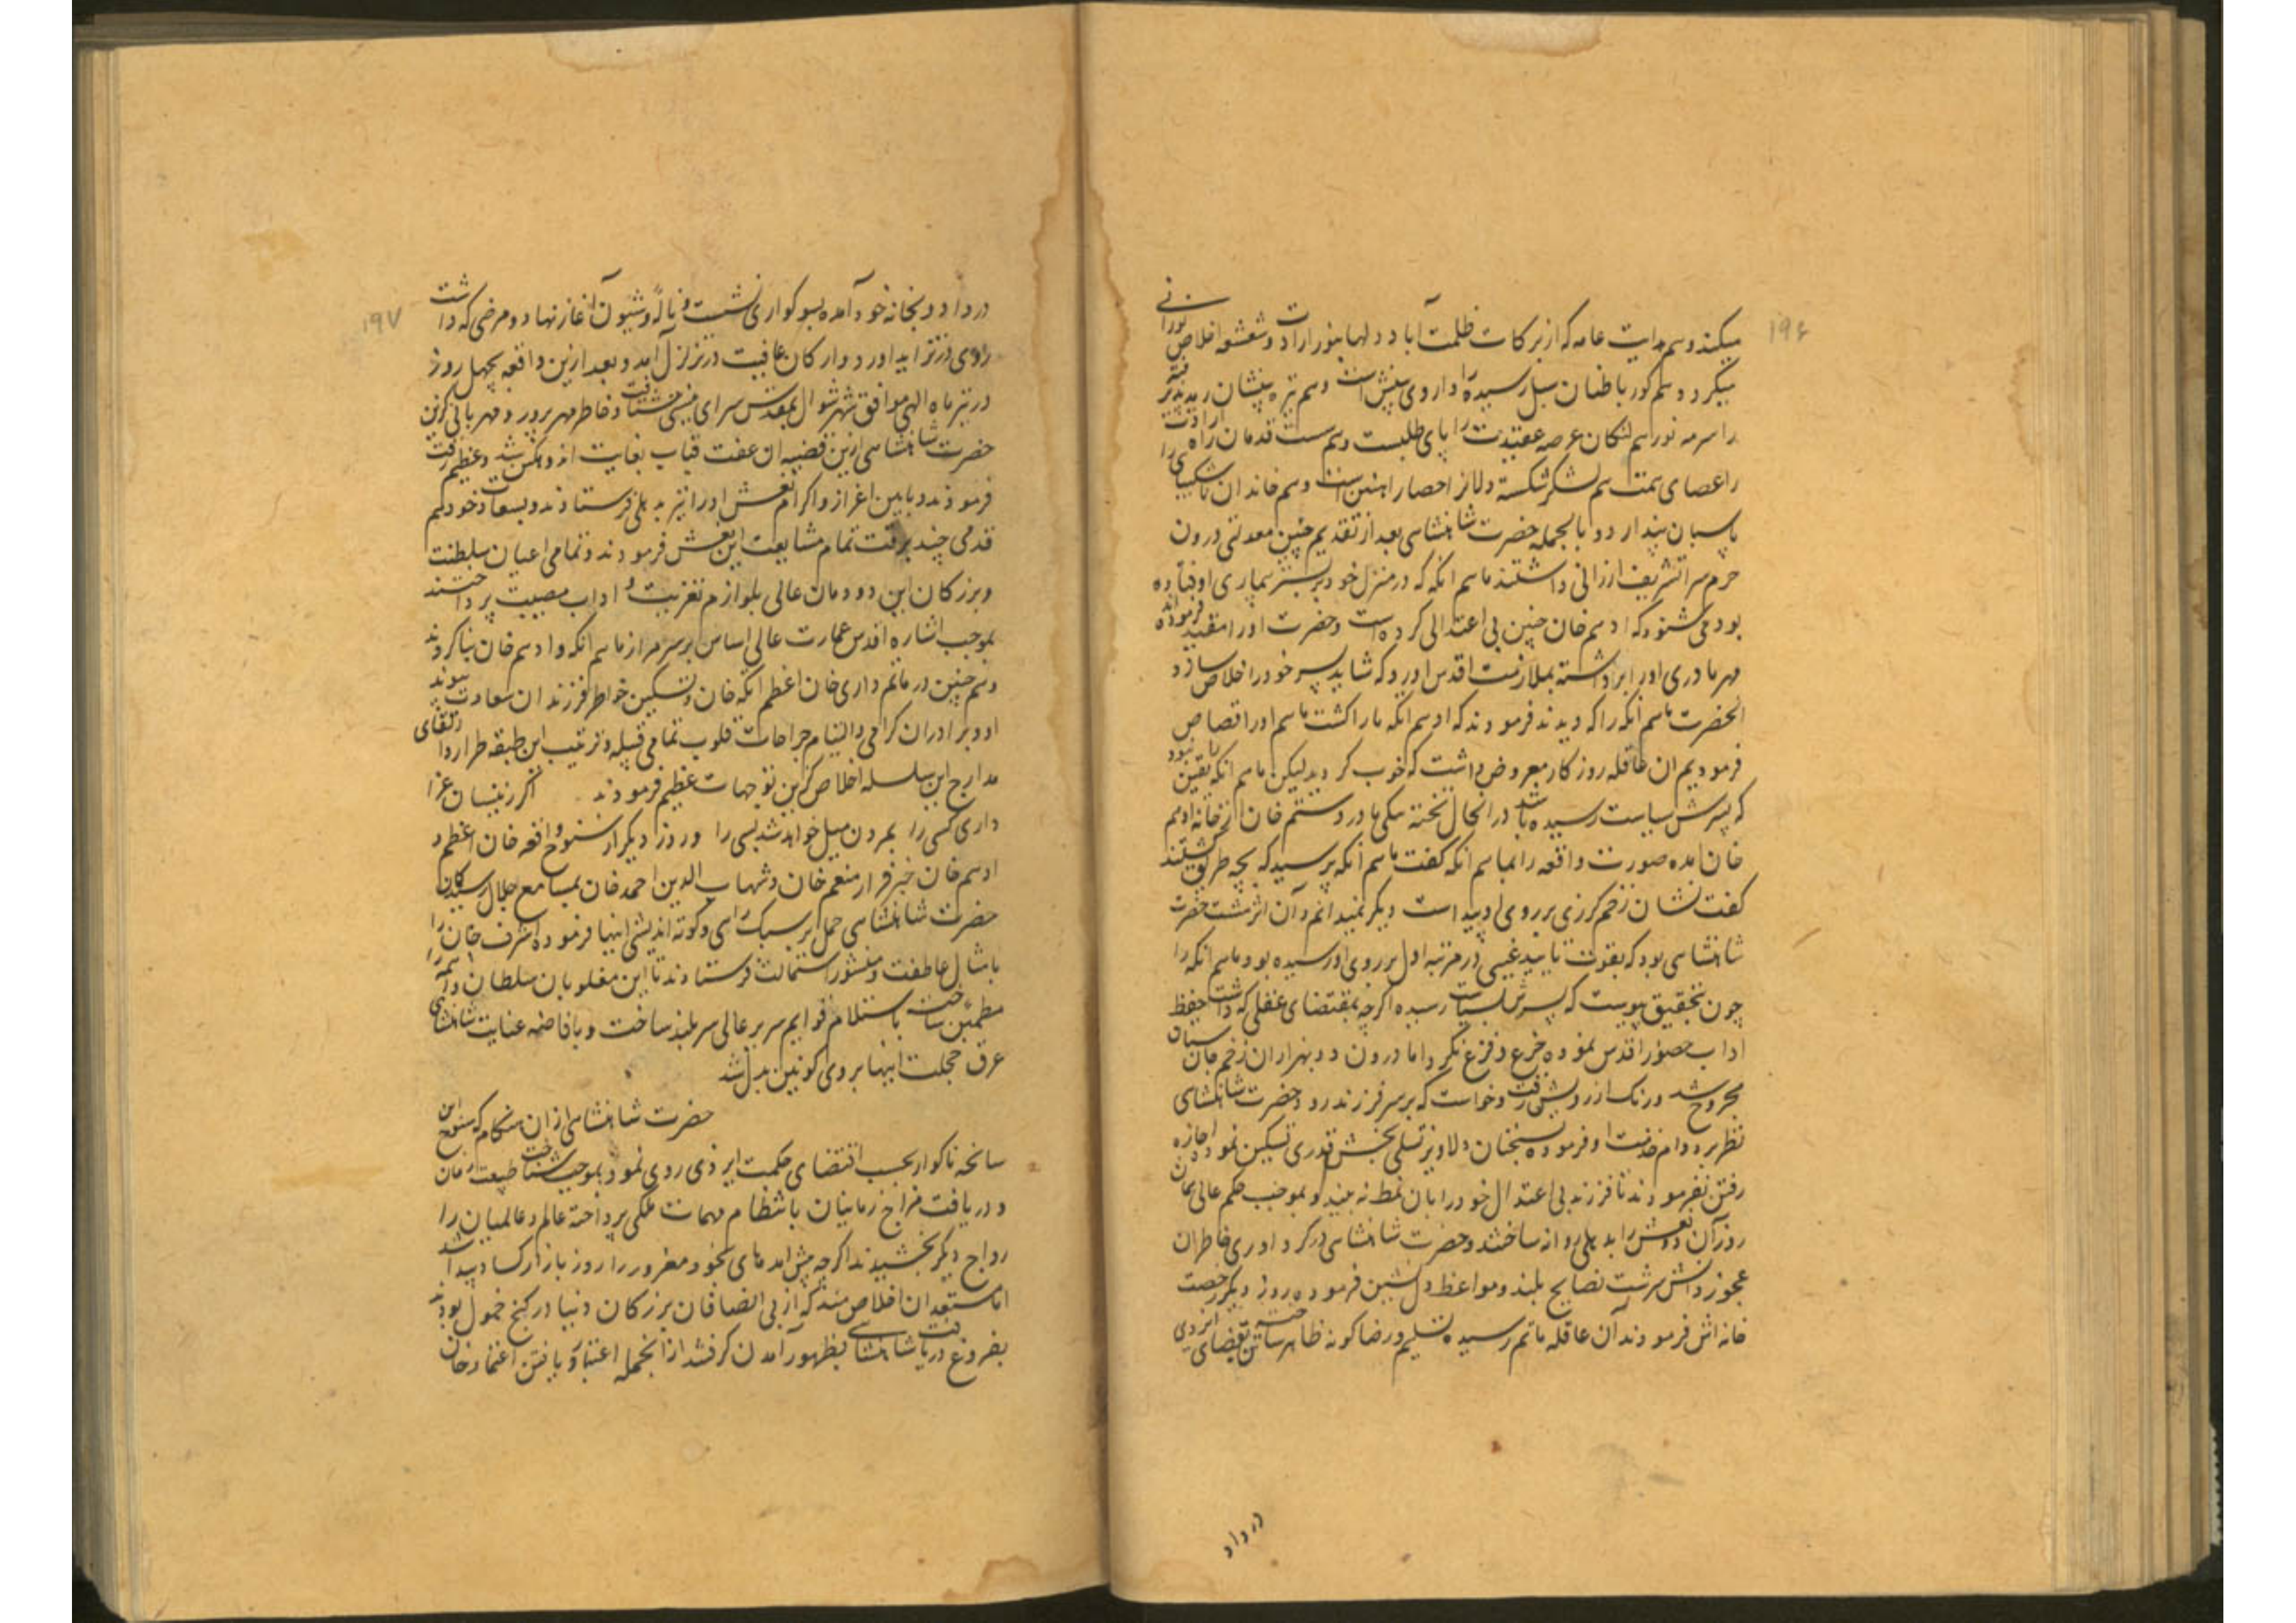 ۱۹۶
میکند و هم هدایت عامه که از برکات ظلمت آباد دلها بنور ارادت و شعشعه اخلاص نورانی
میگردد و هم کور باطنان سبل رسیده را داروی بینش است و هم تیره بینشان رمد پذیرفته
را سرمه نور هم لنگان عرصه عقیدت را پای طلبست و هم سست قدمان راه ارادت
را عصای همت هم لشکر شکسته دلانرا حصار آهنین است و هم خاندان ناشکیبای را
پاسبان بیدار دو بالجمله حضرت شاهنشاهی بعد از تقدیم چنین معدلتی درون
حرم سرا تشریف ارزانی داشتند ماهم انکه که در منزل خود بر بستر بیماری اوفتاده
بود می شنود که ادهم خان چنین بی اعتدالی کرده است و حضرت او را مقید فرموده اند
مهر مادری او را برداشته بملازمت اقدس اورد که شاید پسر خود را خلاص سازد
انحضرت ماهم انکه را که دیدند فرمودند که ادهم انکه ما را کشت ما هم او را قصاص
فرمودیم ان عاقله روزگار معروض داشت که خوب کردید لیکن ماهم انکه را یقین نبود
که پسرش بسیاست رسیده باشد در انحال تخته بیکی مادر دستم خان از خانه ادهم
خان امده صورت واقعه را بماهم انکه گفت ماهم انکه پرسید که بچه طریق کشتند
گفت نشان زخم گرزی بر روی او پیداست دیگر نمیدانم و آن اثر مشت حضرت
شاهنشاهی بود که بقوت تایید غیبی در مرتبه اول بر روی او رسیده بود ماهم انکه را
چون بتحقیق پیوست که پسرش بسیاست رسیده اگرچه بمقتضای عقلی که داشت حفظ
اداب حضور اقدس نموده جزع و فزع نکرد اما درون دو بهزاران زخم جان ستان
مجروح شد و رنگ از رویش رفت و خواست که بر سر فرزند رود حضرت شاهنشاهی
نظر بر دوام خدمت او فرموده بسخنان دلاویز تسلی بخش قدری تسکین نمود و اجازه
رفتن نفرمودند تا فرزند بی اعتدال خود را بان نمط نه بیند و بموجب حکم عالی همان
روز آن دو نعش را به دهلی روانه ساختند و حضرت شاهنشاهی در گرد اوری خاطران
عجوز دانش سرشت نصایح بلند و مواعظ دل نشین فرموده روز دیگر رخصت
خانه اش فرمودند آن عاقله ماتم رسیده تسلیم و رضا گونه ظاهر ساخته بقضای ایزدی
در داد
۱۹۷
در داد و بخانه خود آمده بسوگواری نشست و ناله و شیون آغاز نهاد و مرضی که داشت
روی در تزاید اورد و ارکان عافیت در تزلزل آمد و بعد ازین واقعه بچهل روز
در تیر ماه الهی موافق شهر شوال بمقدس سرای نیستی شتافت و خاطر مهر پرور و مهربانی گزین
حضرت شاهنشاهی ازین قضیه ان عفت قباب بغایت اندوهگین شد و عظیم رقت
فرمودند و باین اعزاز و اکرام نعش او را نیز به دهلی فرستادند و بسعادت خود هم
قدمی چند برقت تمام مشایعت این نعش فرمودند و تمامی اعیان سلطنت
و بزرگان این دودمان عالی بلوازم تعزیت و اداب مصیبت پرداختند
بموجب اشاره اقدس عمارت عالی اساس بر سر مزار ماهم انکه و ادهم خان بنا کردند
و هم چنین در ماتم داری خان اعظم انکه خان و تسکین خواطر فرزندان سعادت پیوند
او و برادران گرامی و التیام جراحات قلوب تمامی قبیله و ترتیب این طبقه طرار و ارتقای
مدارج این سلسله اخلاص گزین توجهات عظیم فرمودند اگر زینسان عزا
داری کسی را بمردن میل خواهد شد بسی را و روز دیگر از سنوح واقعه خان اعظم و
ادهم خان خبر فرار منعم خان و شهاب الدین احمد خان بمسامع جلال رسید بندگان
حضرت شاهنشاهی حمل بر سبک رای و کوته اندیشی اینها فرموده اشرف خان را
با شال عاطفت و منشور استمالت فرستادند تا این مغلوبان سلطان واهمه را
مطمئن ساخت باستلام قوایم سریر عالی سربلند ساخت و بافاضه عنایت شاهنشاهی
عرق خجلت اینها بروی گونین بدل شد
حضرت شاهنشاهی از ان هنگام که سنوح این
سانحه ناگوار بحسب اقتضای حکمت ایزدی روی نمود بموجب شناخت طبیعت زمان
و دریافت مزاج زمانیان بانتظام مهمات ملکی پرداخته عالم و عالمیان را
رواج دیگر بخشیدند اگرچه پیش امدهای بخود مغرور را روز بازار کساد پیدا شد
اما مستعدان اخلاص مند که از بی انصافان بزرگان دنیا در کنج خمول بودند
بفروغ دریافت شاهنشاهی بظهور آمدن گرفتند از انجمله اعتبار یافتن اعتماد خان